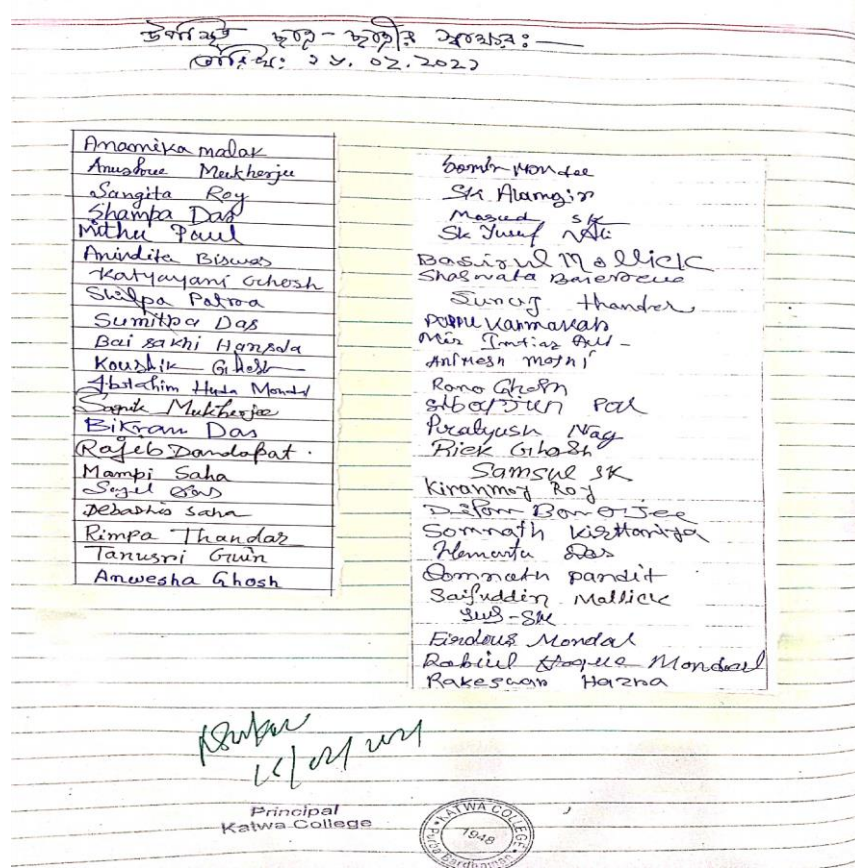 উপস্থিত ছাত্র-ছাত্রীর স্বাক্ষর:—
তারিখ: ১৮.০২.২০২১
Anamika malak
Anushree Mukherjee
Sangita Roy
Shampa Das
Mithu Paul
Anindita Biswas
Katyayani Ghosh
Shilpa Patra
Sumitra Das
Bai sakhi Hansda
Koushik Ghosh
Ibrahim Huda Mondal
Mukherjee
Bikram Das
Rajib Dandapat.
Mampi Saha
Das
Debashis saha
Rimpa Thandar
Tanusri Guin
Anwesha Ghosh
Mondal
Sk Alamgir
Masud Sk
Sk Yusuf Ali
Basirul Mallick
Shaswata
thander
Pappu Karmakar
Mir Imtiaz Ali
Animesh
Rono Ghosh
Pal
Pratyush Nag
Riek Ghosh
Samsul SK
Kiranmoy Roy
Somnath Kirttaniya
Hemanta Das
Somnath pandit
Saifuddin Mallick
Firdous Mondal
Rabiul Hoque Mondal
Hazra
Principal
Katwa College
KATWA COLLEGE
1948
Purba Bardhaman